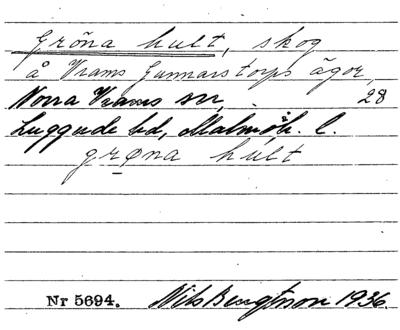 Gröna hult, skog
å Vrams Gunnarstorps ägor,
Norra Vrams sn, 28
Luggude hd, Malmöh. l.
grøna hult
Nr 5694. Nils Bengtsson 1936.